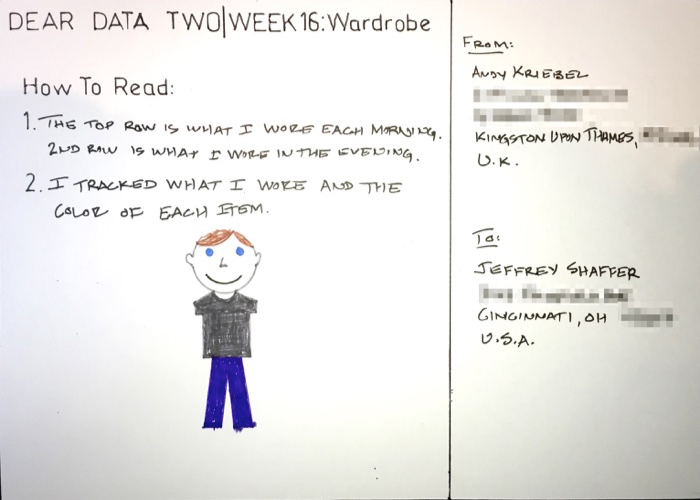 DEAR DATA TWO|WEEK 16: Wardrobe
How To Read:
1. THE TOP ROW IS WHAT I WORE EACH MORNING.
2ND ROW IS WHAT I WORE IN THE EVENING.
2. I TRACKED WHAT I WORE AND THE
COLOR OF EACH ITEM.
FROM:
ANDY KRIEBEL
KINGSTON UPON THAMES,
U.K.
To:
JEFFREY SHAFFER
CINCINNATI, OH
U.S.A.